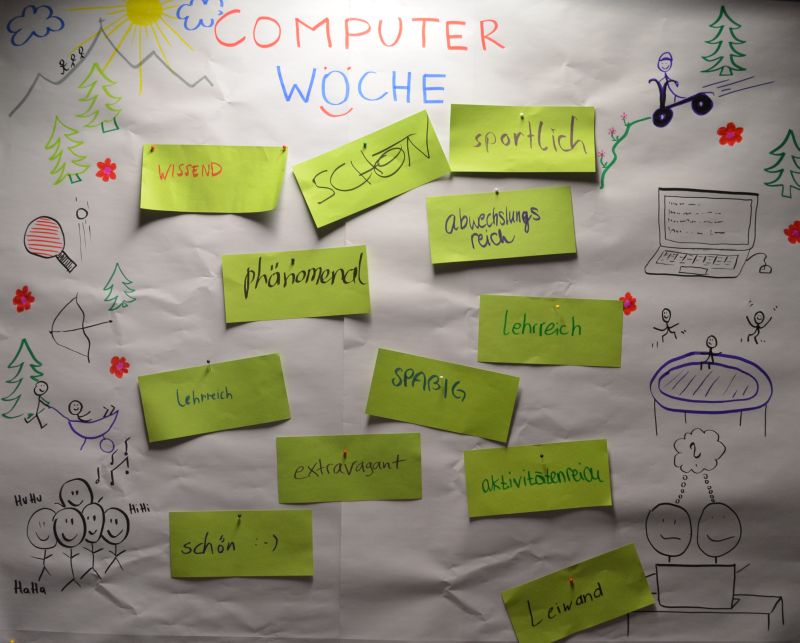 COMPUTER
WOCHE
WISSEND
SCHÖN
sportlich
abwechslungs
reich
phänomenal
lehrreich
lehrreich
SPAßIG
extravagant
aktivitätenreich
schön :-)
Leiwand
HuHu
HiHi
HaHa
?